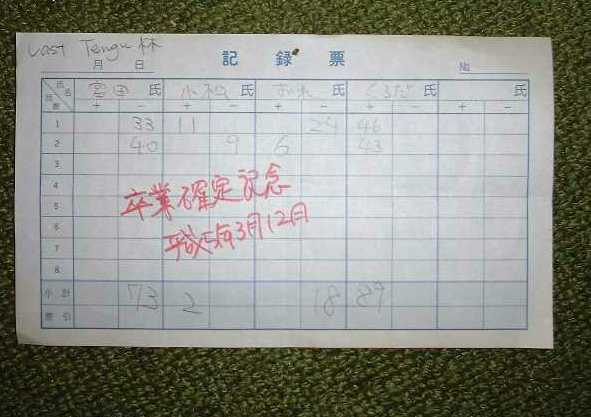 Last Tengu杯
記録票
月 日 №
氏名 宮田 氏 小松 氏 氏 くろだ 氏 氏
回数 + − + − + − + − + −
1 33 11 24 46
2 40 9 6 43
3
4
卒業確定記念
5
平成5年3月12日
6
7
8
小計 73 2 18 89
差引